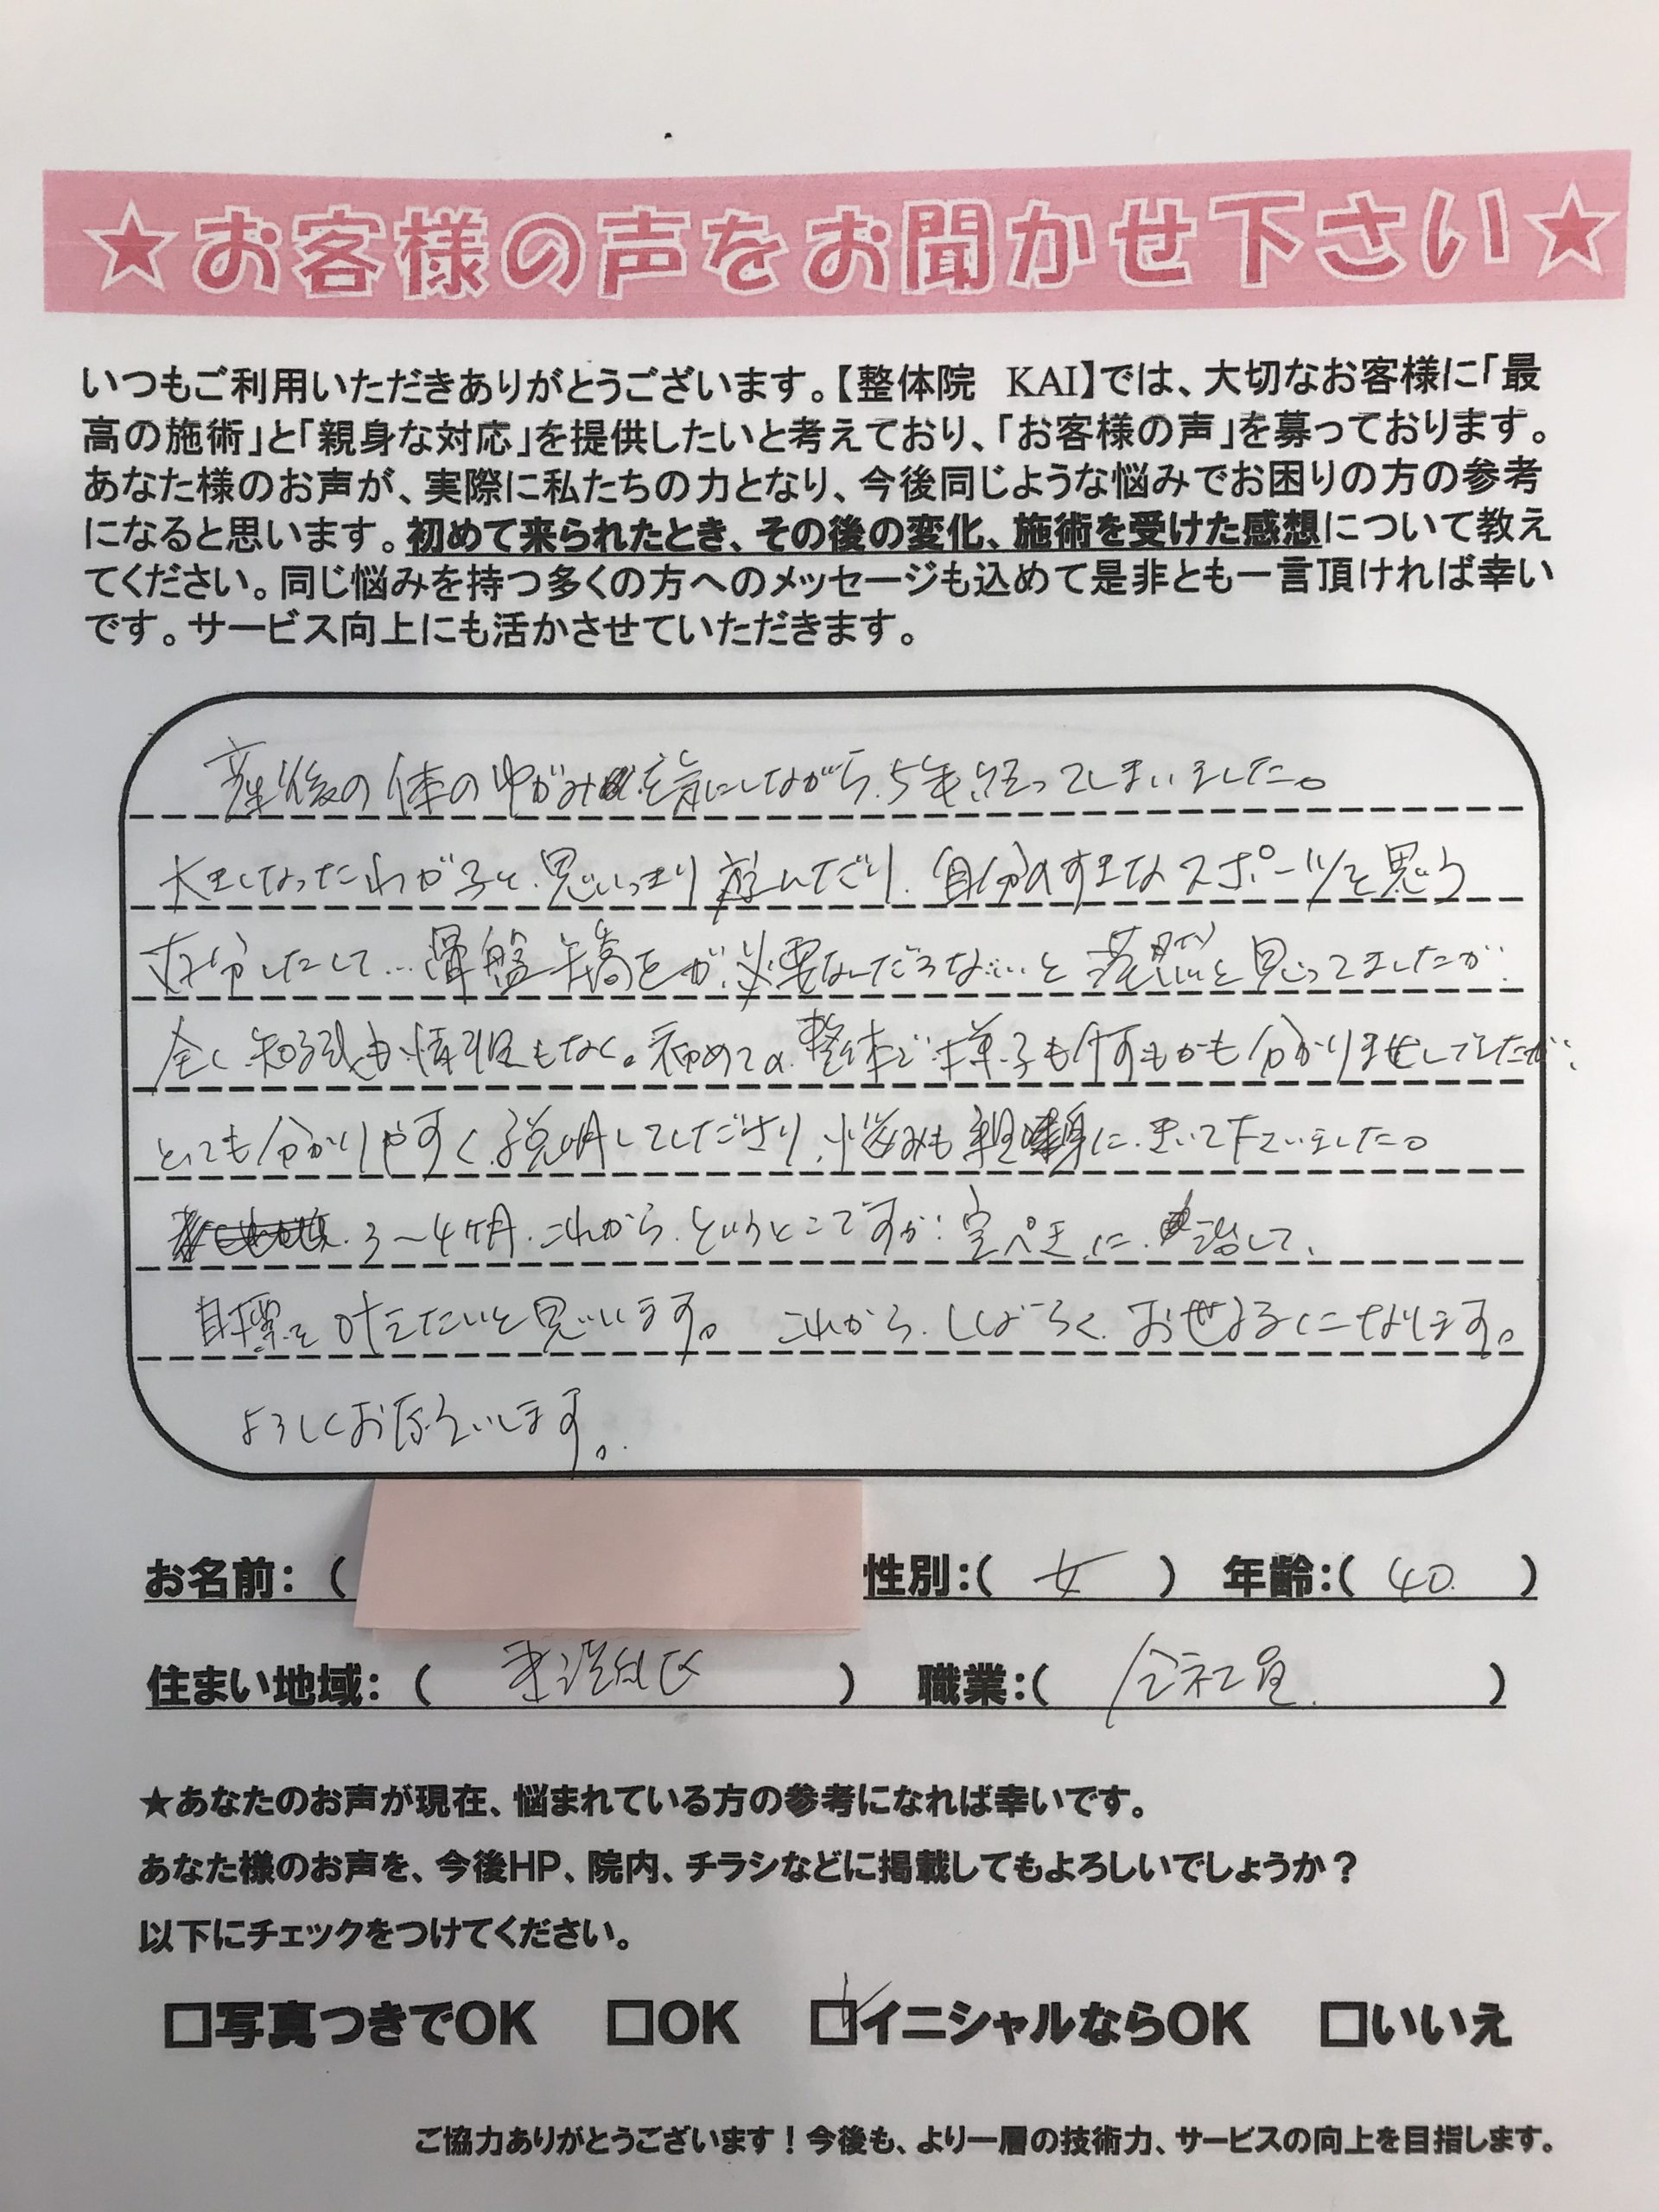 ★お客様の声をお聞かせ下さい★
いつもご利用いただきありがとうございます。【整体院　KAI】では、大切なお客様に「最
高の施術」と「親身な対応」を提供したいと考えており、「お客様の声」を募っております。
あなた様のお声が、実際に私たちの力となり、今後同じような悩みでお困りの方の参考
になると思います。初めて来られたとき、その後の変化、施術を受けた感想について教え
てください。同じ悩みを持つ多くの方へのメッセージも込めて是非とも一言頂ければ幸い
です。サービス向上にも活かさせていただきます。
産後の体のゆがみを気にしながら、5年経ってしまいました。
大きくなったわが子と、思いっきり遊んだり、自分のすきなスポーツを思う
存分したくて…骨盤矯正が必要なんだろな…と漠然と思ってましたが、
全く知識も情報もなく。初めての整体で様子も何もかも分かりませんでしたが、
とても分かりやすく説明してくださり、悩みも親身にきいて下さいました。
3〜4ヶ月、これから、というとこですが、完ペキに治して、
目標を叶えたいと思います。これからしばらくお世話になります。
よろしくお願いします。
お名前：（　性別：（ 女 ）　年齢：（ 40 ）
住まい地域：（　）　職業：（ 会社員 ）
★あなたのお声が現在、悩まれている方の参考になれば幸いです。
あなた様のお声を、今後HP、院内、チラシなどに掲載してもよろしいでしょうか？
以下にチェックをつけてください。
□写真つきでOK　□OK　☑イニシャルならOK　□いいえ
ご協力ありがとうございます！今後も、より一層の技術力、サービスの向上を目指します。